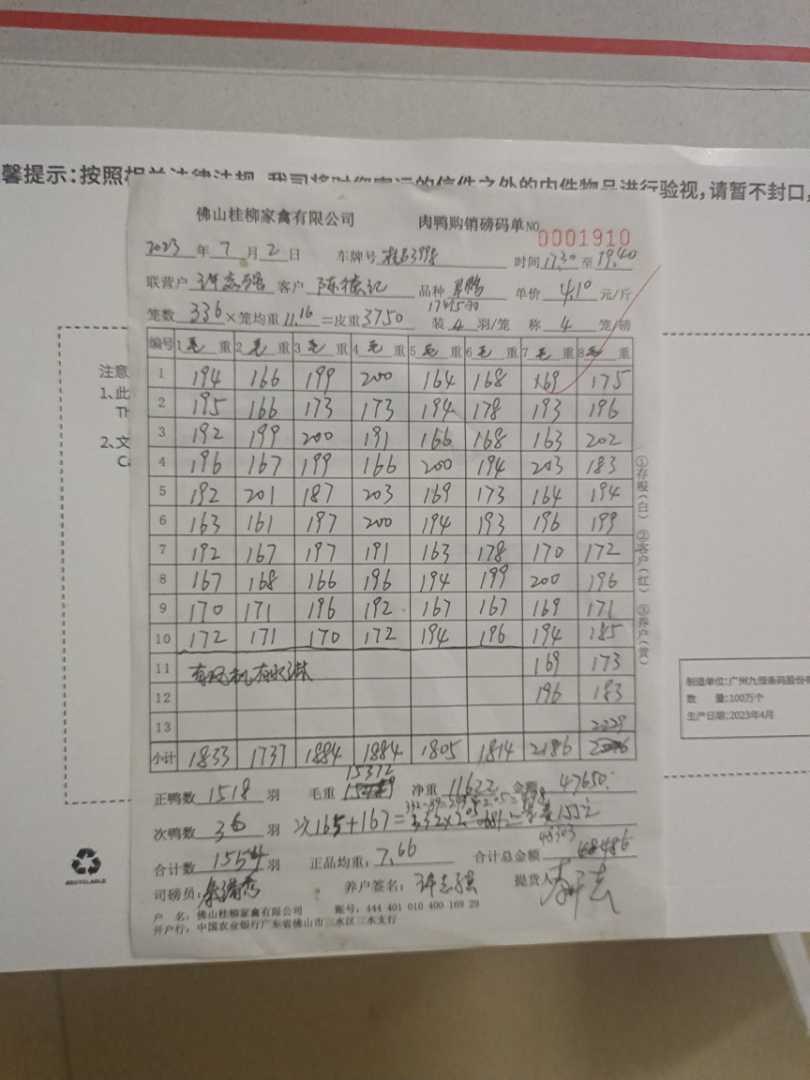 馨提示：按照相关法律法规，我司将对您寄递的信件之外的内件物品进行验视，请暂不封口，
佛山桂柳家禽有限公司 肉鸭购销磅码单 NO 0001910
2023 年 7 月 2 日 车牌号 时间 17.30 至 19.40
联营户 许志强 客户 陈德记 品种 单价 4.10 元/斤
笼数 336 ×笼均重 11.16 =皮重 3750 装 4 羽/笼 称 4 笼/磅
编号 1 毛 重 2 毛 重 3 毛 重 4 毛 重 5 毛 重 6 毛 重 7 毛 重 8 毛 重
1 194 166 199 200 164 168 169 175
2 195 166 173 173 194 178 193 196
3 192 199 200 191 166 168 163 202
4 196 167 199 166 200 194 203 183
5 192 201 187 203 169 173 164 194
6 163 161 197 200 194 193 196 199
7 192 167 197 191 163 178 170 172
8 167 168 166 196 194 199 200 196
9 170 171 196 192 167 167 169 171
10 172 171 170 172 194 196 194 185
11 有风机有水淋 169 173
12 196 183
13 2229
小计 1833 1737 1884 1884 1805 1814 2186
正鸭数 1518 羽 毛重 15372 净重 11622 金额 47650.
次鸭数 36 羽 次165+167=332×2.05
合计数 1554 羽 正品均重： 7.66 合计总金额 48303 48486
司磅员： 养户签名： 许志强 提货人
户 名：佛山桂柳家禽有限公司 账号：444 401 010 400 169 29
开户行：中国农业银行广东省佛山市三水区三水支行
①存根（白） ②客户（红） ③养户（黄）
注意
1、此
Th
2、文
Ca
RECYCLABLE
制造单位:广州九恒条码股份有
数 量:100万个
生产日期:2023年4月